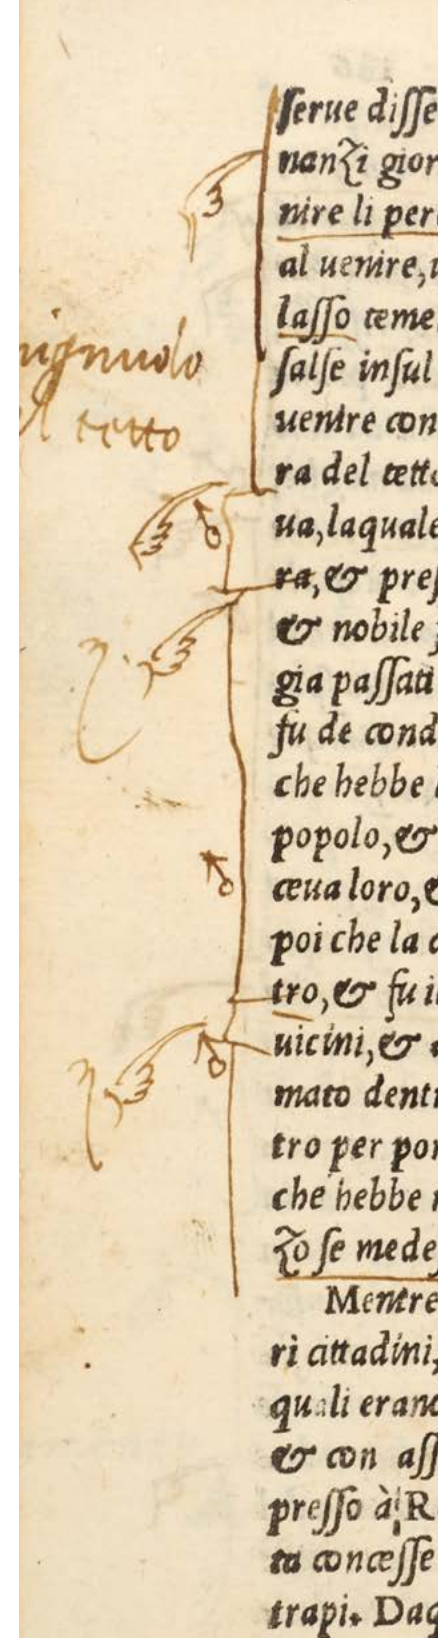 ignudo
l tetto
serue disse
nanzi gior
nire li per
al uenire,
lasso teme
salse insul
uenire con
ra del tetto
ua, laquale
ra, & pres
& nobile
gia passati
fu de cond
che hebbe
popolo, &
ceua loro,
poi che la
tro, & fu i
uicini, &
mato dent
tro per por
che hebbe
zo se mede
Mentre
ri cittadini,
quali eran
& con ass
presso à R
ta concesse
trapi. Daq